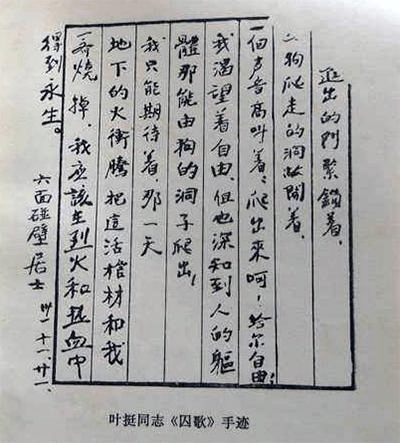 進出的門緊鎖着、
狗爬走的洞敞開着、
一個声音高叫着、爬出來呵！給尔自由！
我渴望着自由、但也深知到人的軀
體那能由狗的洞子爬出！
我只能期待着、那一天
地下的火衝騰、把這活棺材和我
一齊燒掉、我应該在烈火和热血中
得到永生。
六面碰壁居士 卅一、十一、廿一.
叶挺同志《囚歌》手迹